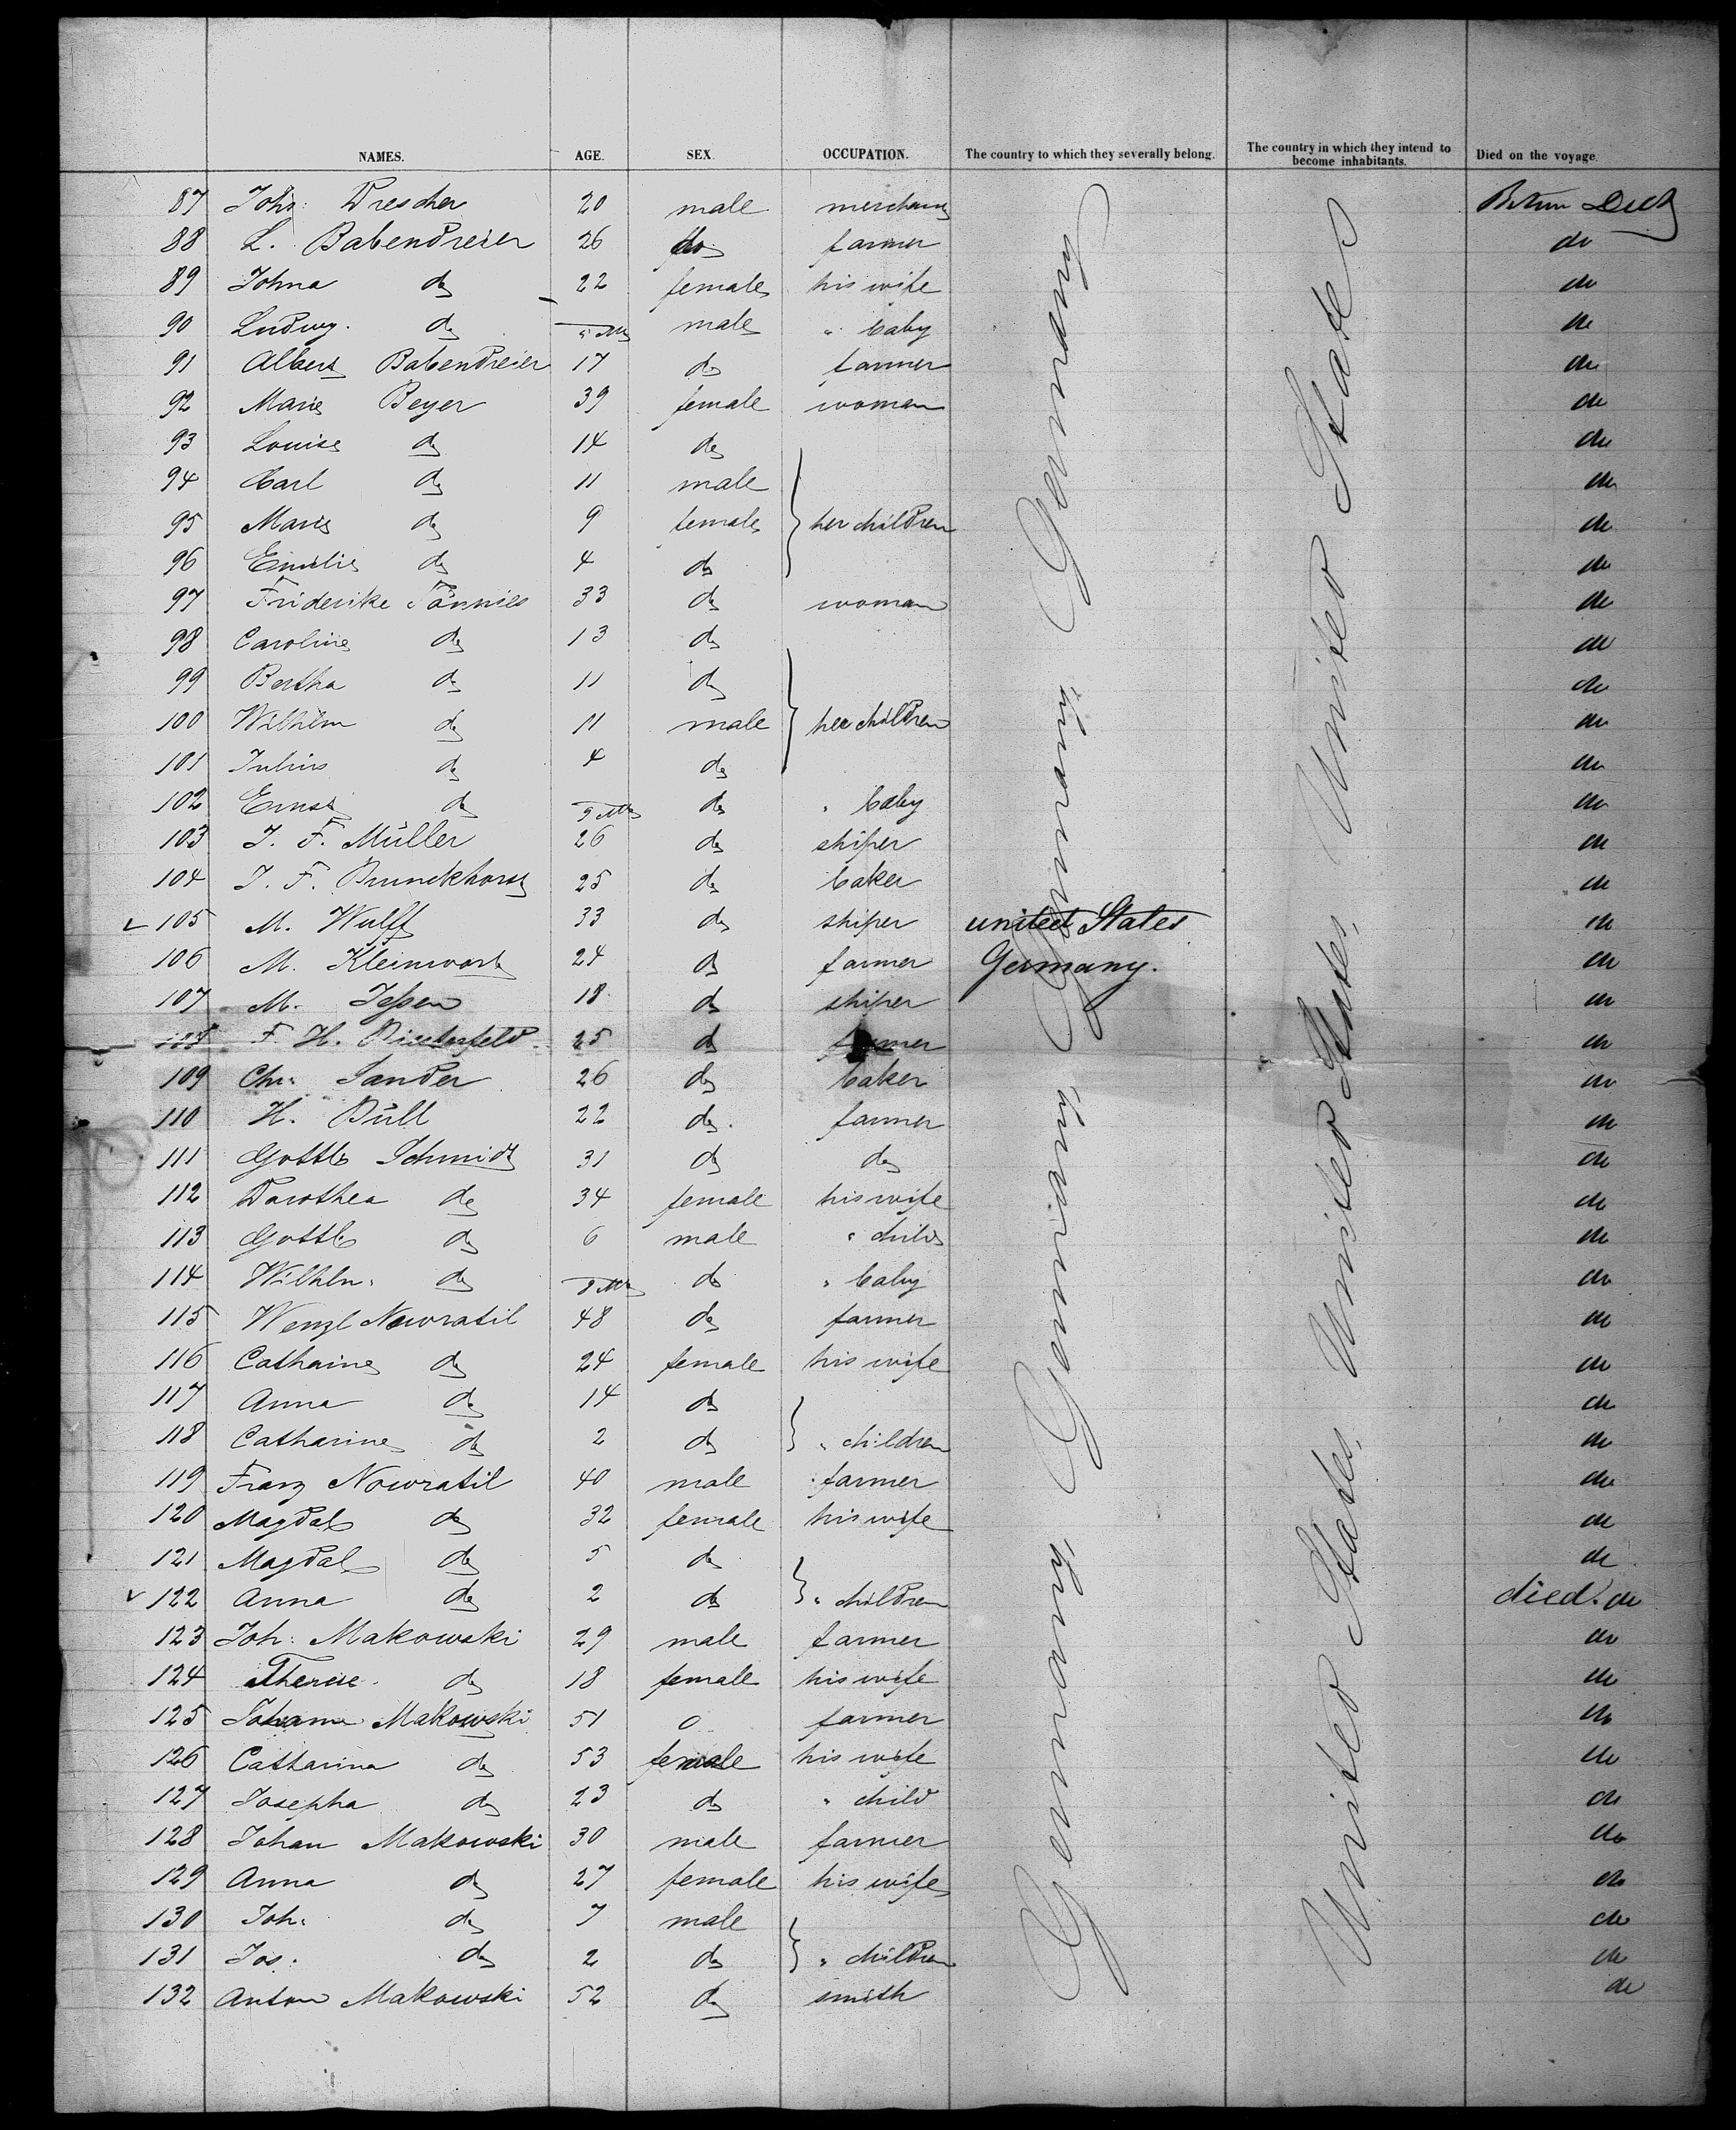 NAMES. AGE. SEX. OCCUPATION. The country to which they severally belong. The country in which they intend to become inhabitants. Died on the voyage.
87 Johs: Drescher 20 male merchant Betwn Deck
88 L. Babendreier 26 do farmer do
89 Johna do 22 female his wife do
90 Ludwg. do male " baby do
91 Albert Babendreier 17 do farmer do
92 Marie Beyer 39 female woman do
93 Louise do 14 do do
94 Carl do 11 male do
95 Marie do 9 female her children do
96 Emilie do 4 do do
97 Friderike Tönnies 33 do woman do
98 Caroline do 13 do do
99 Bertha do 11 do do
100 Wilhelm do 11 male her children do
101 Julius do 4 do do
102 Ernst do 9 Mts do " baby do
103 J. F. Müller 26 do shiper do
104 J. F. Brunckhorst 25 do baker do
105 M. Wulff 33 do shiper united States do
106 M. Kleinwort 24 do farmer Germany. do
107 M. Jessen 18 do shiper do
108 F. H. Biesterfeld 25 do farmer do
109 Chr. Sander 26 do baker do
110 H. Büll 22 do. farmer do
111 Gottlb Schmidt 31 do do do
112 Dorothea do 34 female his wife do
113 Gottlb do 6 male " child do
114 Wilhlm: do do " baby do
115 Wenzl Nowratil 48 do farmer do
116 Cathaine do 24 female his wife do
117 Anna do 14 do do
118 Catharine do 2 do " children do
119 Franz Nowratil 40 male farmer do
120 Magdal do 32 female his wife do
121 Magdal do 5 do do
122 Anna do 2 do " children died. do
123 Joh: Makowski 29 male farmer do
124 Therese do 18 female his wife do
125 Johann Makowski 51 farmer do
126 Catharina do 53 female his wife do
127 Josepha do 23 do " child do
128 Johan Makowski 30 male farmer do
129 Anna do 27 female his wife do
130 Joh: do 7 male do
131 Jos: do 2 do " children do
132 Anton Makowski 52 do smith do
Germany, Germany, Germany, Germany, Germany
United States, United States, United States